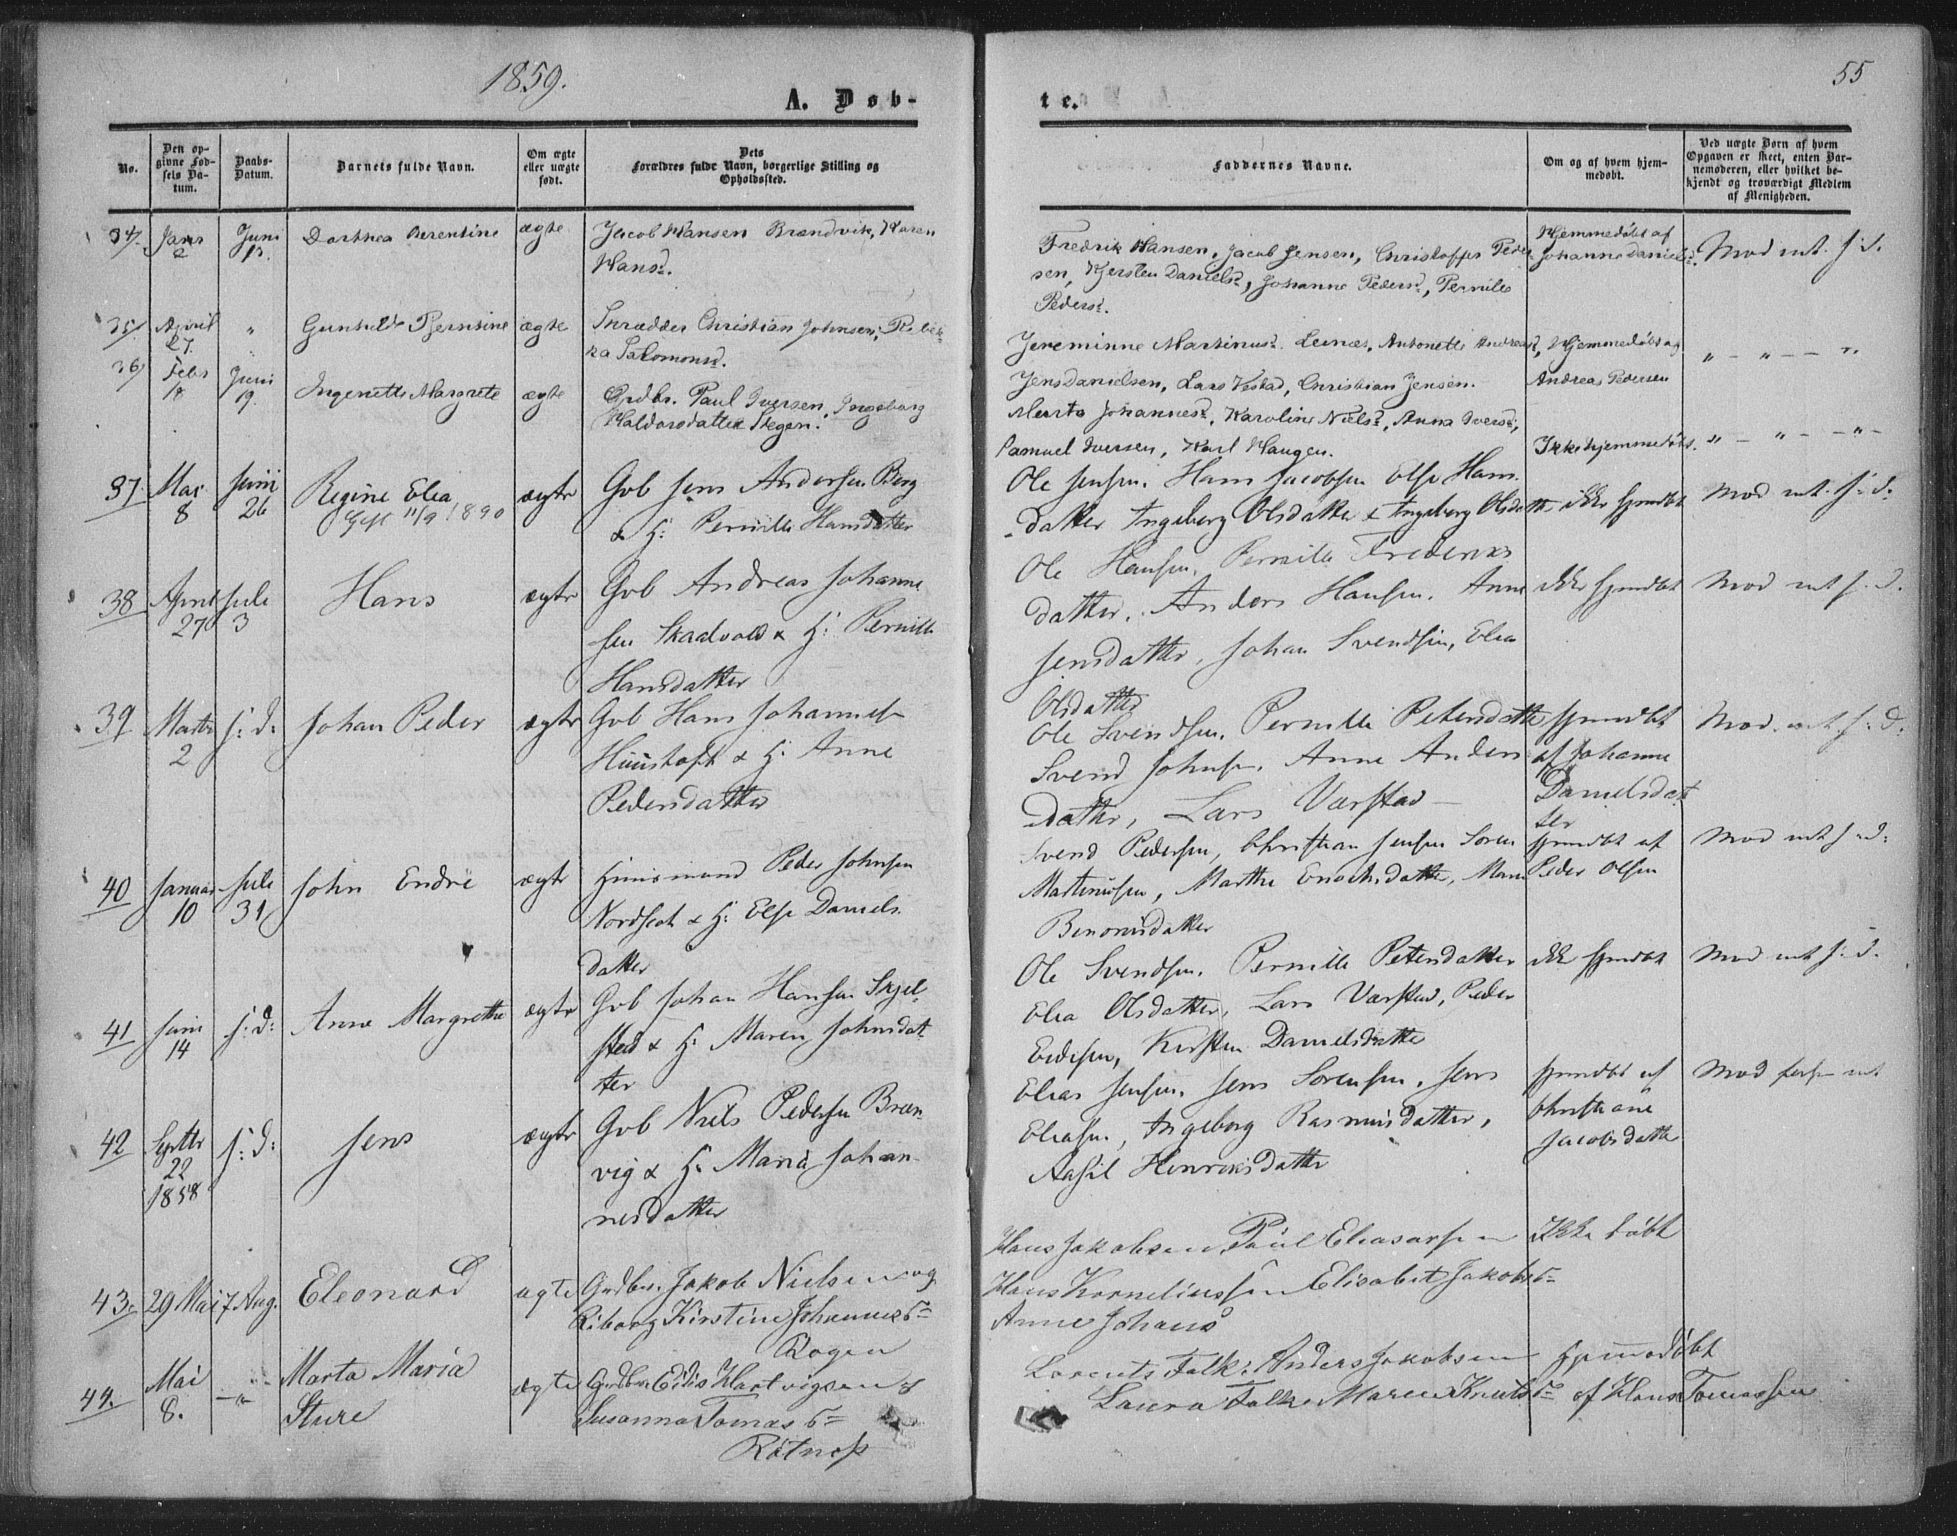 1859.
55
A. Døb-
te.
No.
Den op-
givne Fød-
sels Da-
tum.
Daabs-
Datum.
Barnets fulde Navn.
Om ægte
eller uægte
født.
Dets
Forældres fulde Navn, borgerlige Stilling og
Opholdssted.
Faddernes Navne.
Om og af hvem hjem-
medøbt.
Ved uægte Børn af hvem
Opgaven er skeet, enten Bar-
nemoderen, eller hvilket be-
kjendt og troværdigt Medlem
af Menigheden.
34. Janr 2 Juni 13. Dorthea Berentine ægte Jacob Hansen Brændvik, Karen
Hansd.
Fredrik Hansen, Jacob Jensen, Christoffer Peder-
sen, Kjersten Danielsd, Johanne Pedersd, Pernille
Pedersd.
Hjemmedøbt af
Johanne Danielsd.
Mod nt. s. d.
35 April 27. " Gunhild Berntine ægte Skrædder Christian Johnsen, Rebek-
ka Salomonsd.
Jereminne Martinusd. Leines, Antonette Andreasd,
Jens Danielsen, Lars Vestad, Christian Jensen.
Hjemmedøbt af
Andreas Pedersen
" - " - - "
36 Febr 18 Juni 19. Ingenette Margrete ægte Grdbr. Paul Iversen, Ingeborg
Haldorsdatter Skogen.
Marta Johannesd, Karoline Nielsd, Anna Iversd,
Samuel Iversen, Karl Haugen.
Ikke hjemmedøbt.
" - " - - " -
37. Mai 8 Juni 26 Regine Elea
Gift 11/9 1890
ægte Gvb Jens Andersen Berg
& H: Pernille Hansdatter
Ole Jensen. Hans Jacobsen Else Hans
datter Ingeborg Olsdatter & Ingeborg Olsdatt
ikke hjemdøbt
Mod nt. s: d:
38 April 27 Juli 3 Hans ægte Gvb Andreas Johanne
sen Skaalvold & H: Pernille
Hansdatter
Ole Hansen, Pernille Frederiks
datter. Anders Hansen. Anne
Jensdatter, Johan Svendsen, Elea
Olsdatter
ikke hjemdøbt
Mod nt s. d.
39 Marts 2 s: d: Johan Peder ægte Gvb Hans Johannes
Huustoft & H: Anne
Pedersdatter
Ole Svendsen. Pernille Petersdatter
Svend Johnsen. Anne Anders
datter, Lars Varstad
hjemdøbt
af Johanne
Danielsdat
ter
Mod. nt s: d.
40 Januar 10 Juli 31 John Endre ægte Huusmand Peder Johnsen
Nordfest & H: Else Daniels
datter
Svend Pedersen, Christian Jensen Soren
Martinusen, Marthe Enochsdatter, Maren
Benonisdatter
hjemdøbt af
Peder Olsen
Mod nt s. d:
41 Juni 14 s: d: Anne Margrethe ægte Gvb Johan Hansen Skjel-
stad & H: Maren Johnsdat
ter
Ole Svendsen. Pernille Petersdatter
Elea Olsdatter, Lars Varstad, Peder
Endresen, Kirsten Danielsdatter
ikke hjemdøbt
Mod nt s. d.
42 Septbr 22 1858 s: d: Jens ægte Gvb Niels Pedersen Bræn
vig & H: Maria Johan-
nesdatter
Elias Jensen, Jens Sorensen, Jens
Eliasen, Ingeborg Rasmusdatter,
Aasil Henriksdatter
hjemdøbt af
Christiane
Jacobsdatter
Mod nt
43. 29 Mai 7 Aug. Eleonard ægte Grdbr. Jakob Nielsen og
Riborg Kirstine Johannesd
Rogen
Hans Jakobsen, Paul Eleasarsen
Hans Kornelius søn Elisabet Jakobsd
Anne Johans
Ikke døbt
44. Mai 8. — " — Marta Maria
Sture
ægte Grdbr Edis Hartvigsen &
Susanna Tomas d
Røtnes
Lorents Falk. Anders Jakobsen
Laura Falk Maren Knutsd
hjemmedøbt
af Hans Tomassen